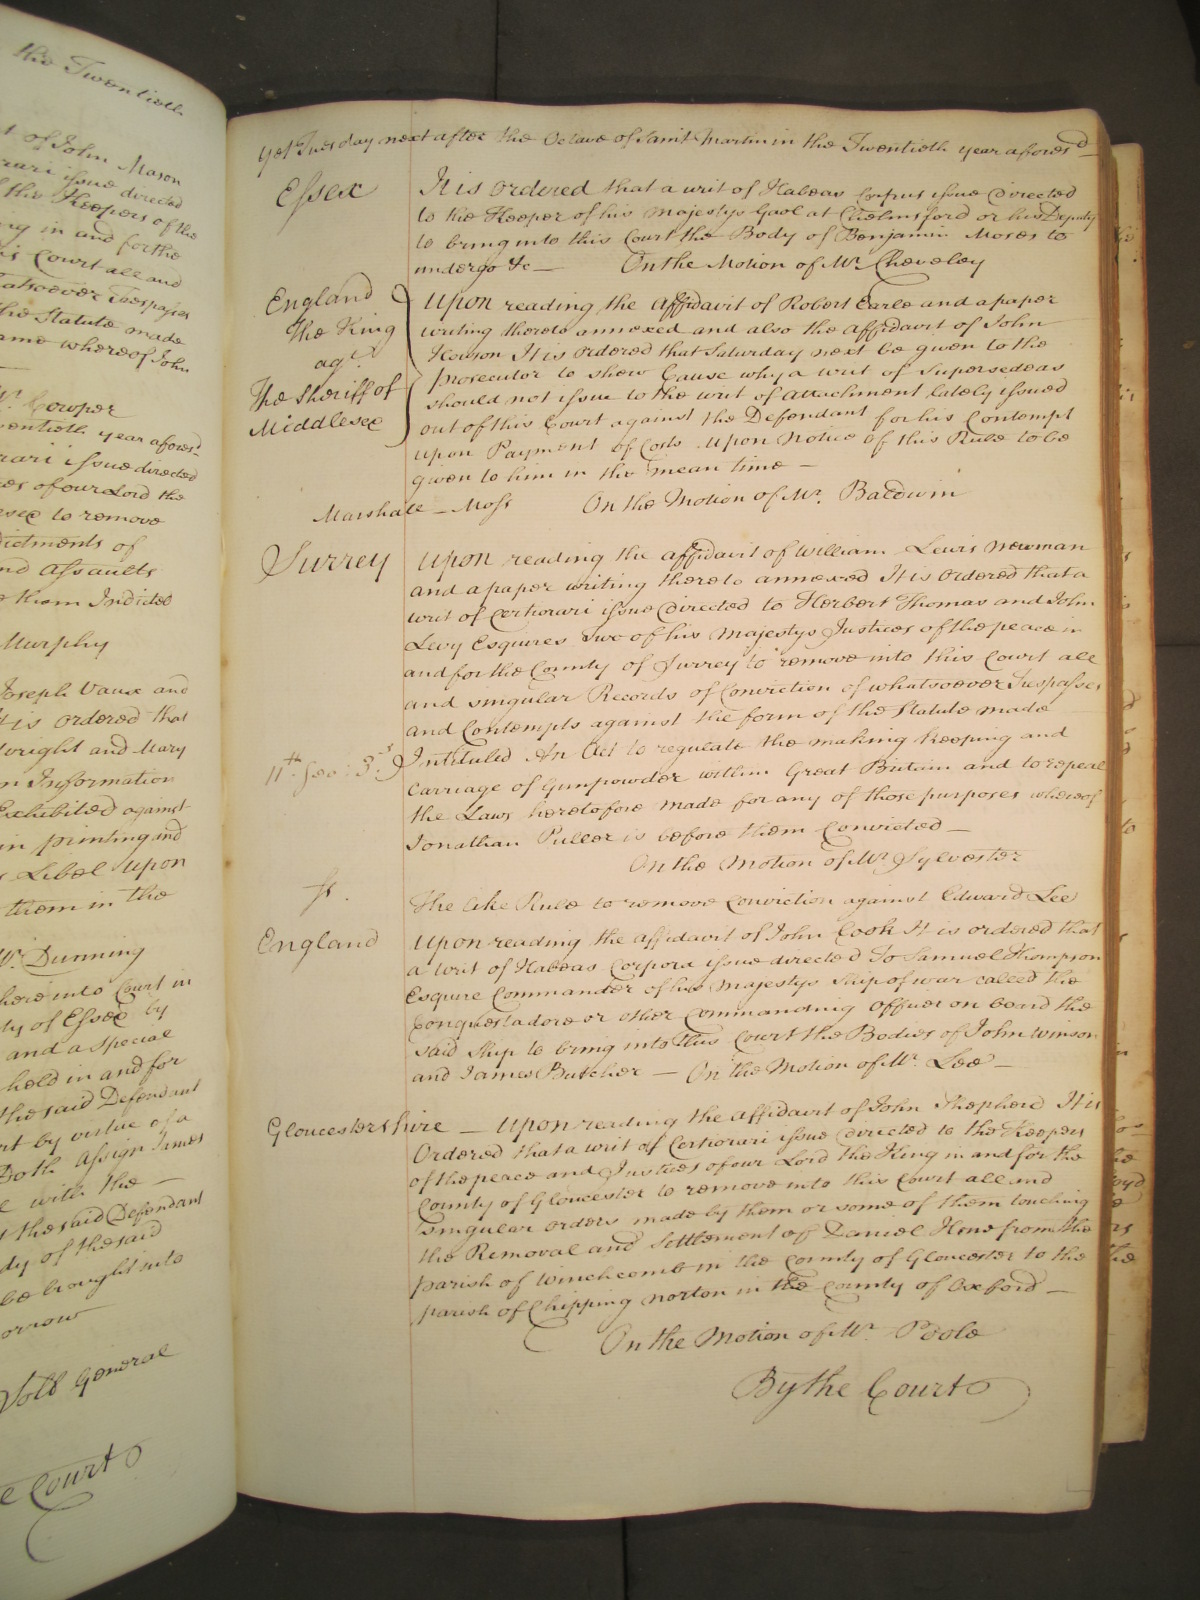 the Twentieth
t of John Mason
rari issue directed
f the Keepers of the
ry in and for the
is Court all and
atsoever Trespasses
the Statute made
ame whereof John
Mr. Cowper
wentieth year aforesd.
rari issue directed
ces of our Lord the
esex to remove
dictments of
nd Assaults
e them Indicted
Murphy
Joseph Vaux and
It is ordered that
Wright and Mary
n Information
Exhibited against
in printing and
s Libel Upon
them in the
Mr. Dunning
here into Court in
ty of Essex by
and a Special
held in and for
the said Defendant
nt by virtue of a
Doth Assign James
e with the —
t the said Defendant
dy of the said
be brought into
orrow
General
e Court
Yet Tuesday next after the Octave of Saint Martin in the Twentieth year aforesd —
Essex It is ordered that a writ of Habeas Corpus issue Directed
to the Keeper of his Majestys Gaol at Chelmsford or his Deputy
to bring into this Court the Body of Benjamin Moses to
undergo &c — On the Motion of Mr. Cheveley
England Upon reading the Affidavit of Robert Earle and a paper
The King writing thereto annexed and also the Affidavit of John
agt. Howson It is ordered that Saturday next be given to the
The Sheriff of prosecutor to shew Cause why a writ of Supersedeas
Middlesex should not issue to the writ of Attachment lately issued
out of this Court against the Defendant for his Contempt
upon Payment of Costs Upon Notice of this Rule to be
given to him in the mean time —
Marshall — Moss On the Motion of Mr. Baldwin
Surrey Upon reading the affidavit of William Lewis Newman
and a paper writing thereto annexed It is Ordered that a
writ of Certiorari issue Directed to Herbert Thomas and John
Levy Esquires two of his Majestys Justices of the peace in
and for the County of Surrey to remove into this Court all
and singular Records of Conviction of whatsoever Trespasses
and Contempts against the form of the Statute made
11th. Geo: 3d. Intituled An Act to regulate the making Keeping and
Carriage of Gunpowder within Great Britain and to repeal
the Laws heretofore made for any of those purposes whereof
Jonathan Puller is before them Convicted —
On the Motion of Mr. Sylvester
Ss. The like Rule to remove Conviction against Edward Lee
England Upon reading the affidavit of John Cook It is ordered that
a writ of Habeas Corpora issue directed To Samuel Thompson
Esquire Commander of his Majestys Ship of war called the
Conquestadore or other Commanding Officer on board the
said Ship to bring into this Court the Bodies of John Winson
and James Butcher — On the Motion of Mr. Lee —
Gloucestershire — Upon reading the Affidavit of John Shepherd It is
Ordered that a writ of Certiorari issue Directed to the Keepers
of the peace and Justices of our Lord the King in and for the
County of Gloucester to remove into this Court all and
singular orders made by them or some of them touching
the Removal and Settlement of Daniel Hone from the
parish of Winchcomb in the County of Gloucester to the
parish of Chipping Norton in the County of Oxford —
On the Motion of Mr. Poole
By the Court